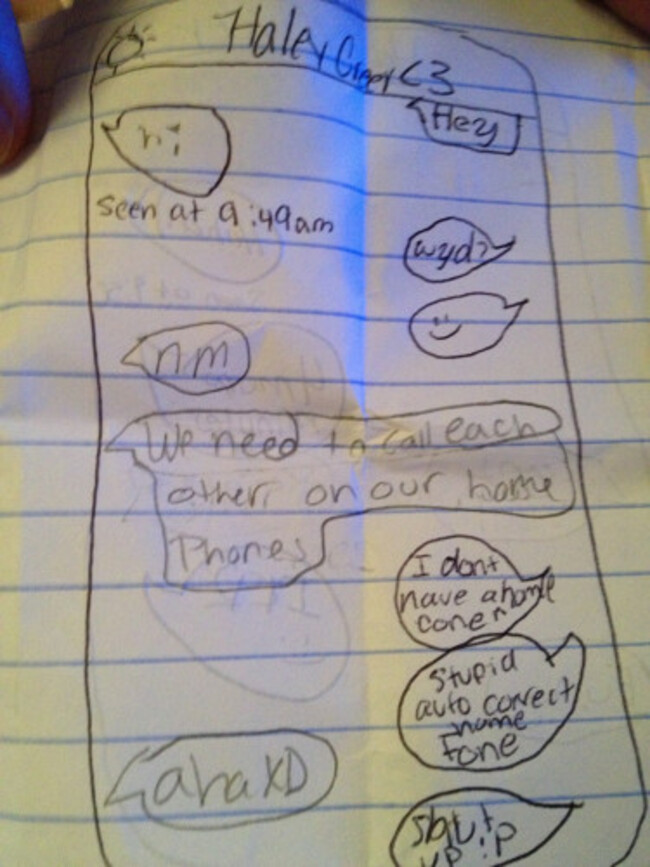 Haley Greer <3
Hey
hi
seen at 9:49am
wyd?
nm
We need to call each
other on our home
Phones
I dont
have a home
coner
Stupid
auto correct
home
fone
ahaXD
Shut
up :p